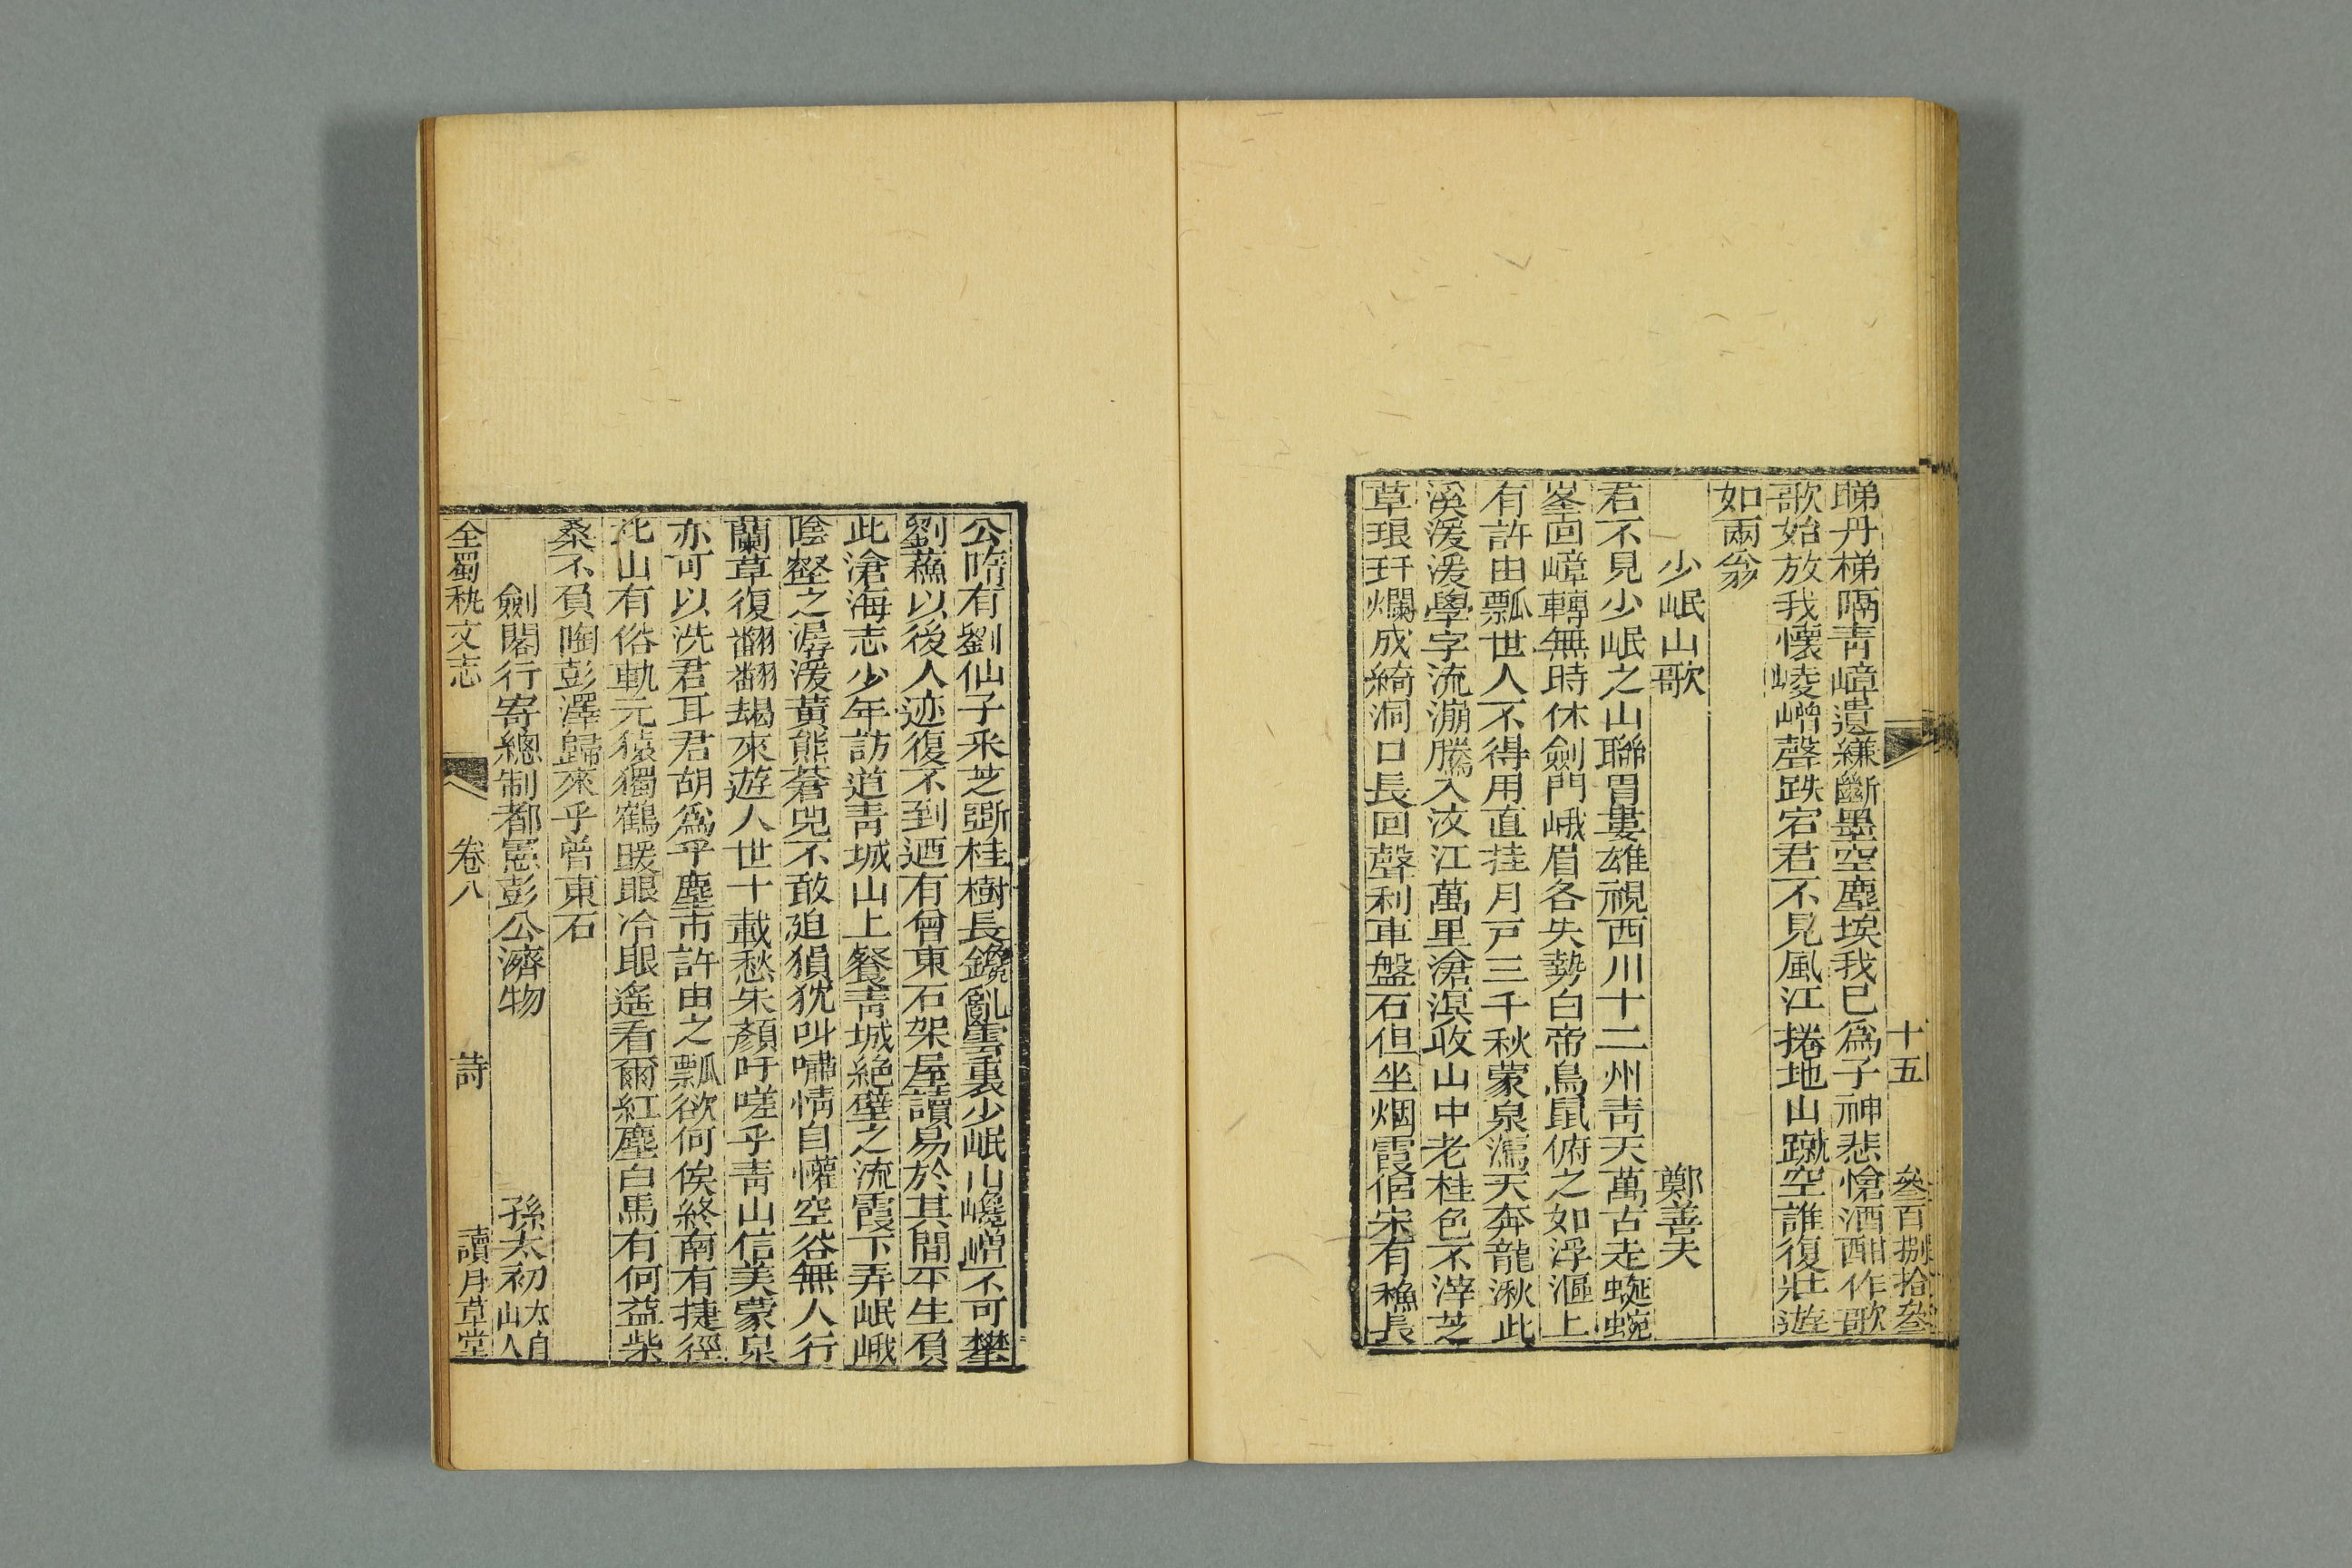 十五 叅百捌拾叄
睇丹梯隔青嶂遺縑斷墨空塵埃我已爲子神悲愴酒酣作歌
歌始放我懷崚嶒聲跌宕君不見風江捲地山蹴空誰復壯遊
如兩翁
少岷山歌 鄭善夫
君不見少岷之山聯胃婁雄視西川十二州青天萬古走蜿蜿
峯回嶂轉無時休劍門峨眉各失勢白帝鳥鼠俯之如浮漚上
有許由瓢世人不得用直挂月戸三千秋蒙泉瀉天奔龍湫此
溪湲湲學字流漰騰入汶江萬里滄溟收山中老桂色不滓芝
草琅玕爛成綺洞口長回聲利車盤石但坐烟霞侶宋有穐長
公隋有劉仙子采芝斲桂樹長鑱亂雲裏少岷山巉嶒不可攀
劉蘓以後人迹復不到迺有曾東石架屋讀易於其間平生負
此滄海志少年訪道青城山上餐青城絶壁之流霞下弄岷峨
陰壑之潺湲黃熊蒼兕不敢迫猿狖叫嘯情自懽空谷無人行
蘭草復翻翻朅來遊人世十載愁朱顏吁嗟乎青山信美蒙泉
亦可以洗君耳君胡爲乎塵市許由之瓢欲何俟終南有捷徑
北山有俗軌元猿獨鶴暖眼冷眼遙看爾紅塵白馬有何益柴
桑不負陶彭澤歸來乎曾東石
劍閣行寄總制都憲彭公濟物 孫太初太白山人
全蜀秇文志 卷八 詩 讀月草堂